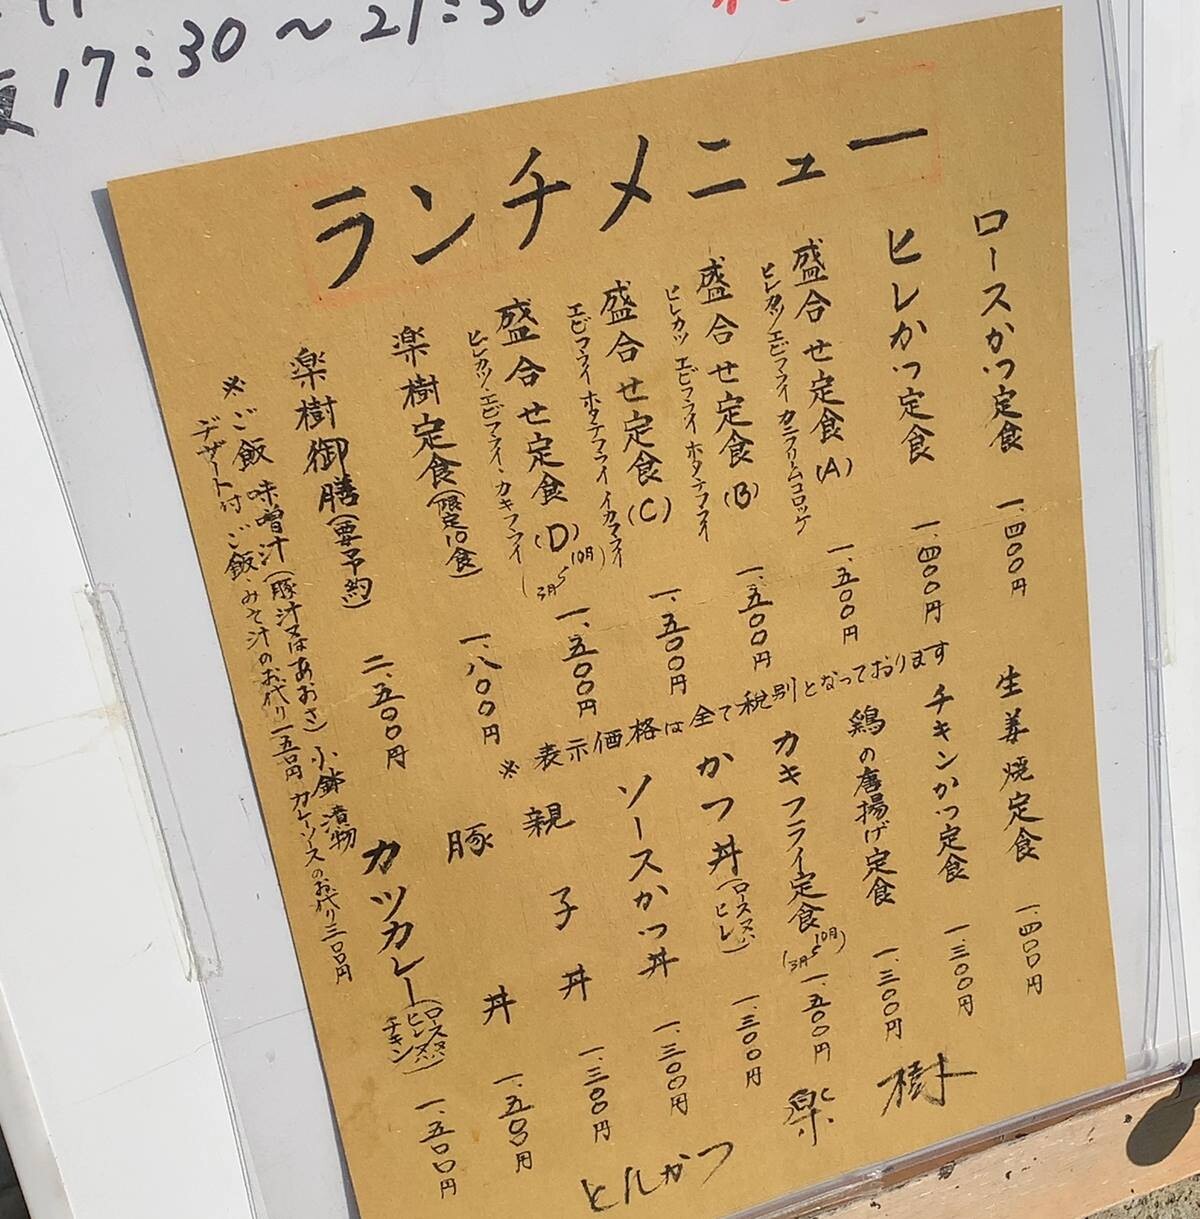 17:30～21:30
ランチメニュー
ロースかつ定食 一、四〇〇円
ヒレかつ定食 一、四〇〇円
盛合せ定食(A) 一、五〇〇円
ヒレカツ エビフライ カニクリームコロッケ
盛合せ定食(B) 一、五〇〇円
ヒレカツ エビフライ ホタテフライ
盛合せ定食(C) 一、五〇〇円
エビフライ ホタテフライ イカフライ
盛合せ定食(D)(10月～3月) 一、五〇〇円
ヒレカツ・エビフライ・カキフライ
楽樹定食(限定10食) 一、八〇〇円
楽樹御膳(要予約) 二、五〇〇円
※ご飯 味噌汁(豚汁又はあおさ)小鉢 漬物
デザート付 ご飯・みそ汁のお代り一五〇円 カレーソースのお代り三〇〇円
※表示価格は全て税別となっております
生姜焼定食 一、四〇〇円
チキンかつ定食 一、三〇〇円
鶏の唐揚げ定食 一、三〇〇円
カキフライ定食(10月～3月) 一、五〇〇円
かつ丼(ロース又ハヒレ) 一、三〇〇円
ソースかつ丼 一、三〇〇円
親子丼 一、三〇〇円
豚丼 一、五〇〇円
カツカレー(ロース又ハヒレ又ハチキン) 一、五〇〇円
とんかつ 楽樹